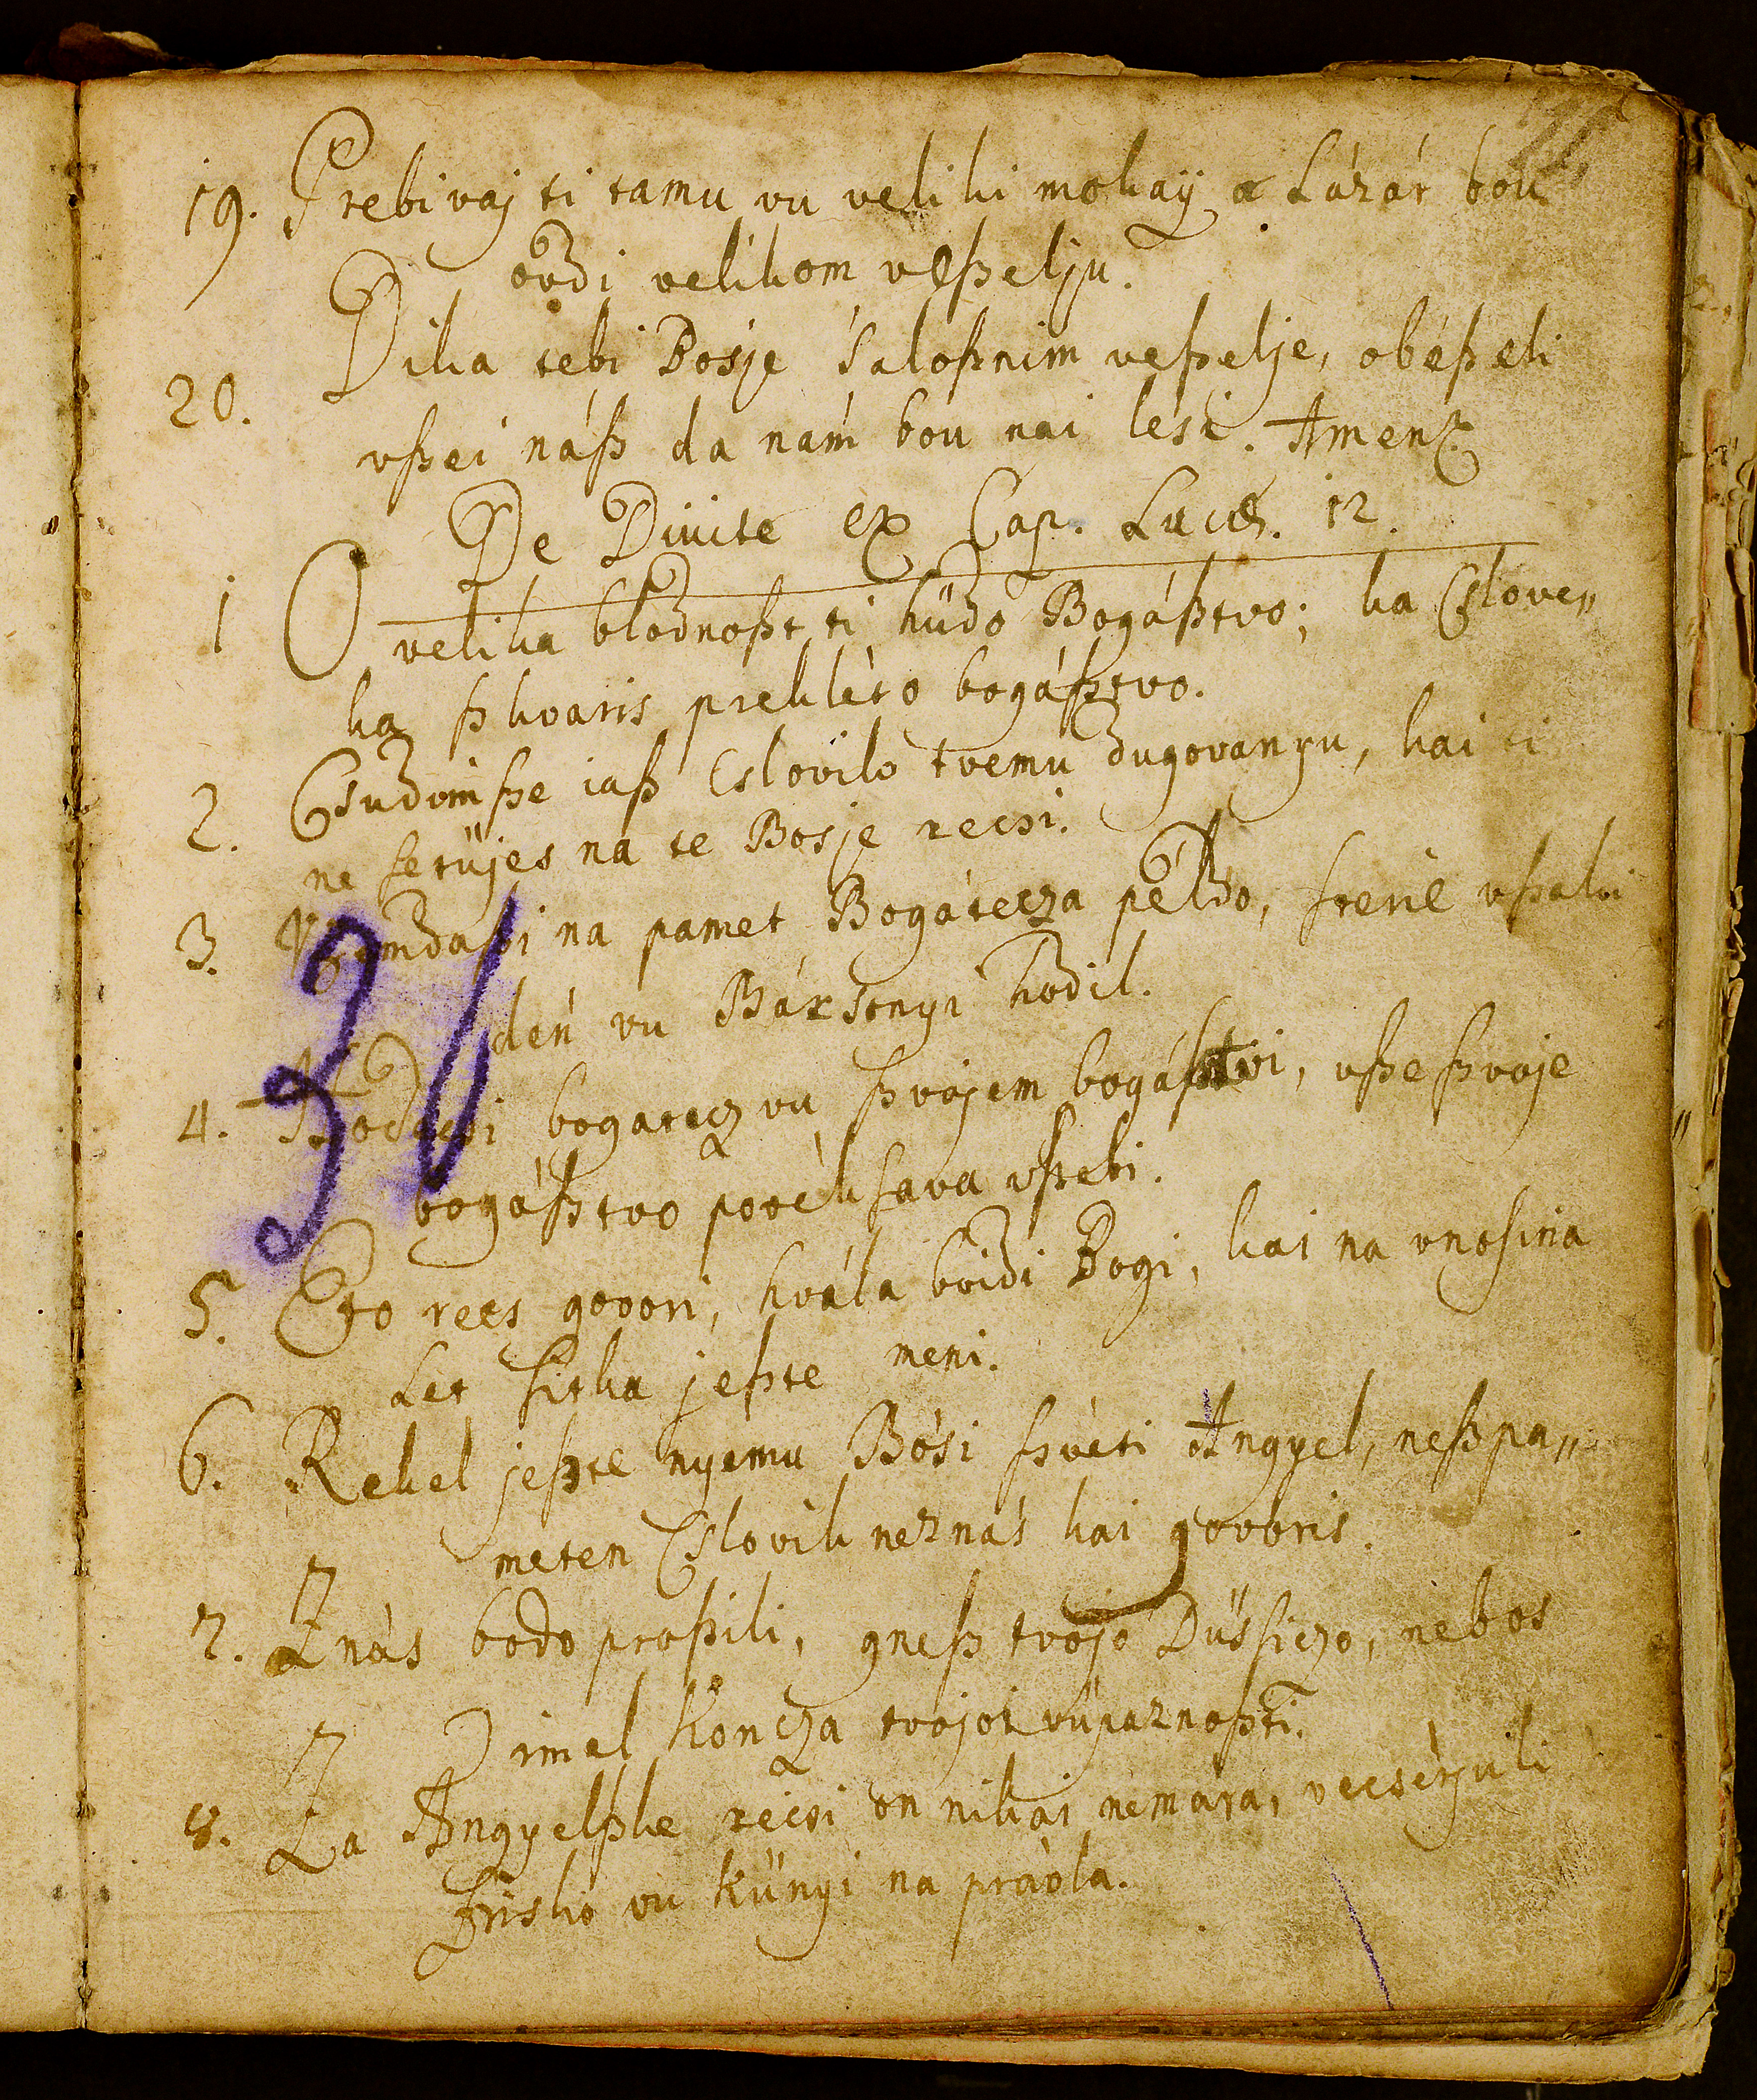 19. Prebivaj ti tamu vu veliki mokaÿ a Lázár bou
ovdi velikom veßelju.
20. Dika tebi Bosje saloßnim veßelje, obéßeli
vßei náß da nám bou nai lési. Amen.
De Divite ex Cap. Lucæ. 12.
1 O velika blodnoßt ti hüdo Bogáßtvo; ka Cslove„
ka ßkvaris prekléto bogáßtvo.
2. Csudimße iaß Cslovilo tvemu dugovanyu, kai ti
ne setüjes na te Bosje recsi.
3. na pamet Bogátecza példo, steríe vßaki
den vu Bársonyi hodil.
4. bogatecz vu ßvojem bogáßtvi, vße ßvoje
bogáßtvo povéksava vßebi.
5. Eto recs govori, hvála boidi Bogi, kai na vnosina
Let sitka jeßte meni.
6. Rekel jeßte nyemu Bósi ßvéti Angyel, neßpa„
meten Cslovik neznás kai govoris.
7. Znás bodo proßili, gneß tvojo Düssiczo, nébos
imel koncza tvojoi vupaznoßti.
8. Za Angyelßke récsi on nikai nemára, vecsérjuli
frisko vu künyi na právla.
31